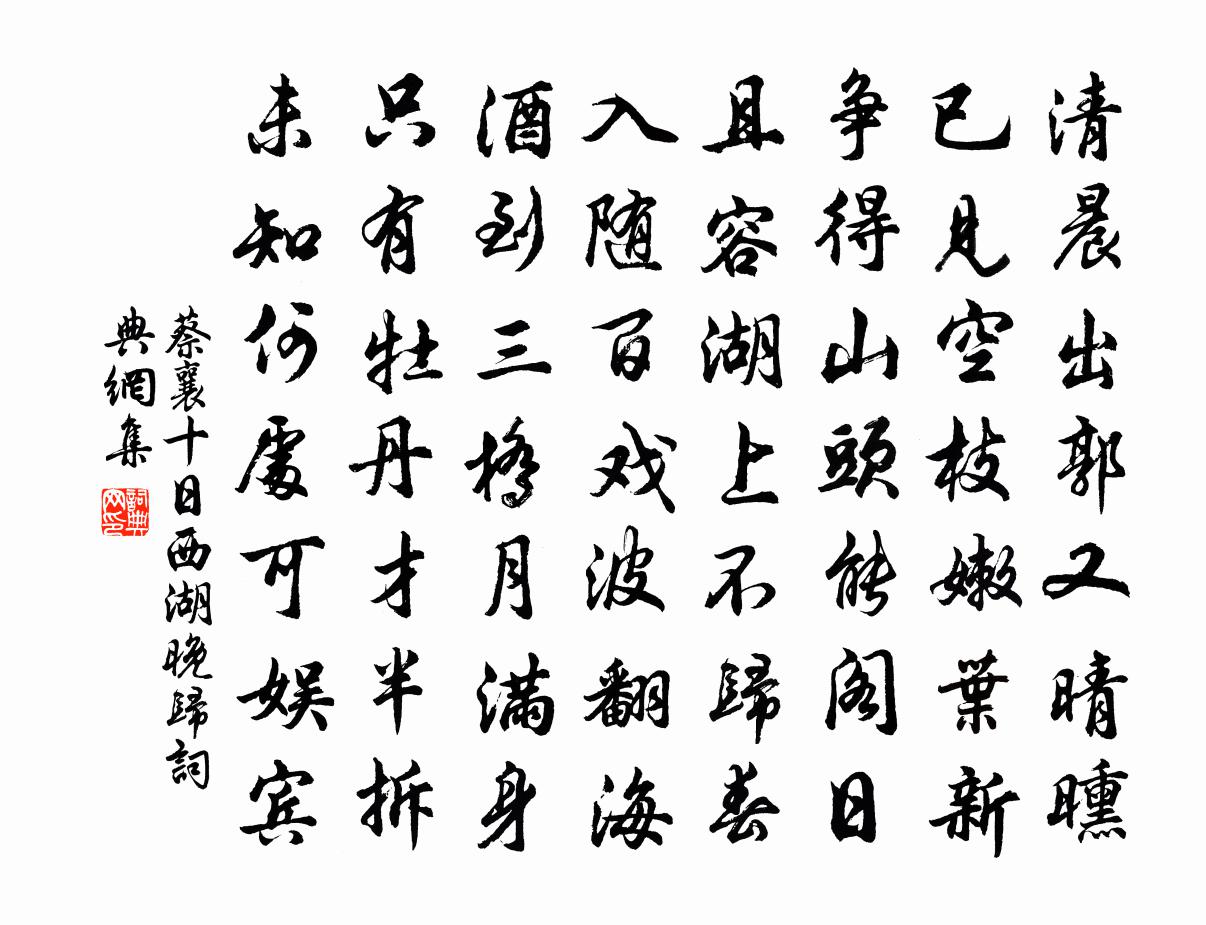 清晨出郭又晴曛
已見空枝嫩葉新
争得山頭能閣日
且容湖上不歸春
入随百戏波翻海
酒到三橋月滿身
只有牡丹才半拆
未知何處可娱宾
蔡襄十日西湖晚歸詞
典網集
詞典
网印